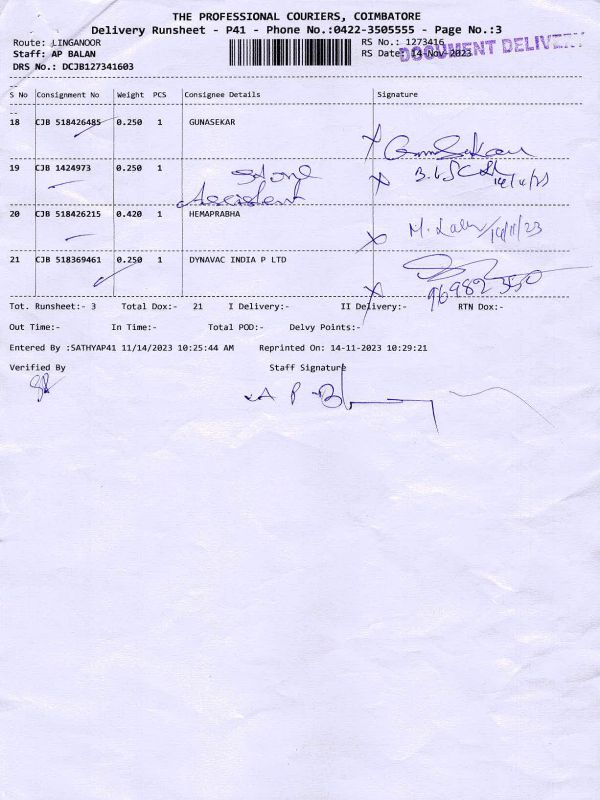 THE PROFESSIONAL COURIERS, COIMBATORE
Delivery Runsheet - P41 - Phone No.:0422-3505555 - Page No.:3
Route: LINGANOOR RS No.: 1273416
Staff: AP BALAN RS Date: 14-Nov-2023
DOCUMENT DELIVERY
DRS No.: DCJB127341603
S No Consignment No Weight PCS Consignee Details Signature
18 CJB 518426485 0.250 1 GUNASEKAR
Gunasekar
19 CJB 1424973 0.250 1
14/11/23
20 CJB 518426215 0.420 1 HEMAPRABHA
14/11/23
21 CJB 518369461 0.250 1 DYNAVAC INDIA P LTD
Tot. Runsheet:- 3 Total Dox:- 21 I Delivery:- II Delivery:- RTN Dox:-
Out Time:- In Time:- Total POD:- Delvy Points:-
Entered By :SATHYAP41 11/14/2023 10:25:44 AM Reprinted On: 14-11-2023 10:29:21
Verified By Staff Signature